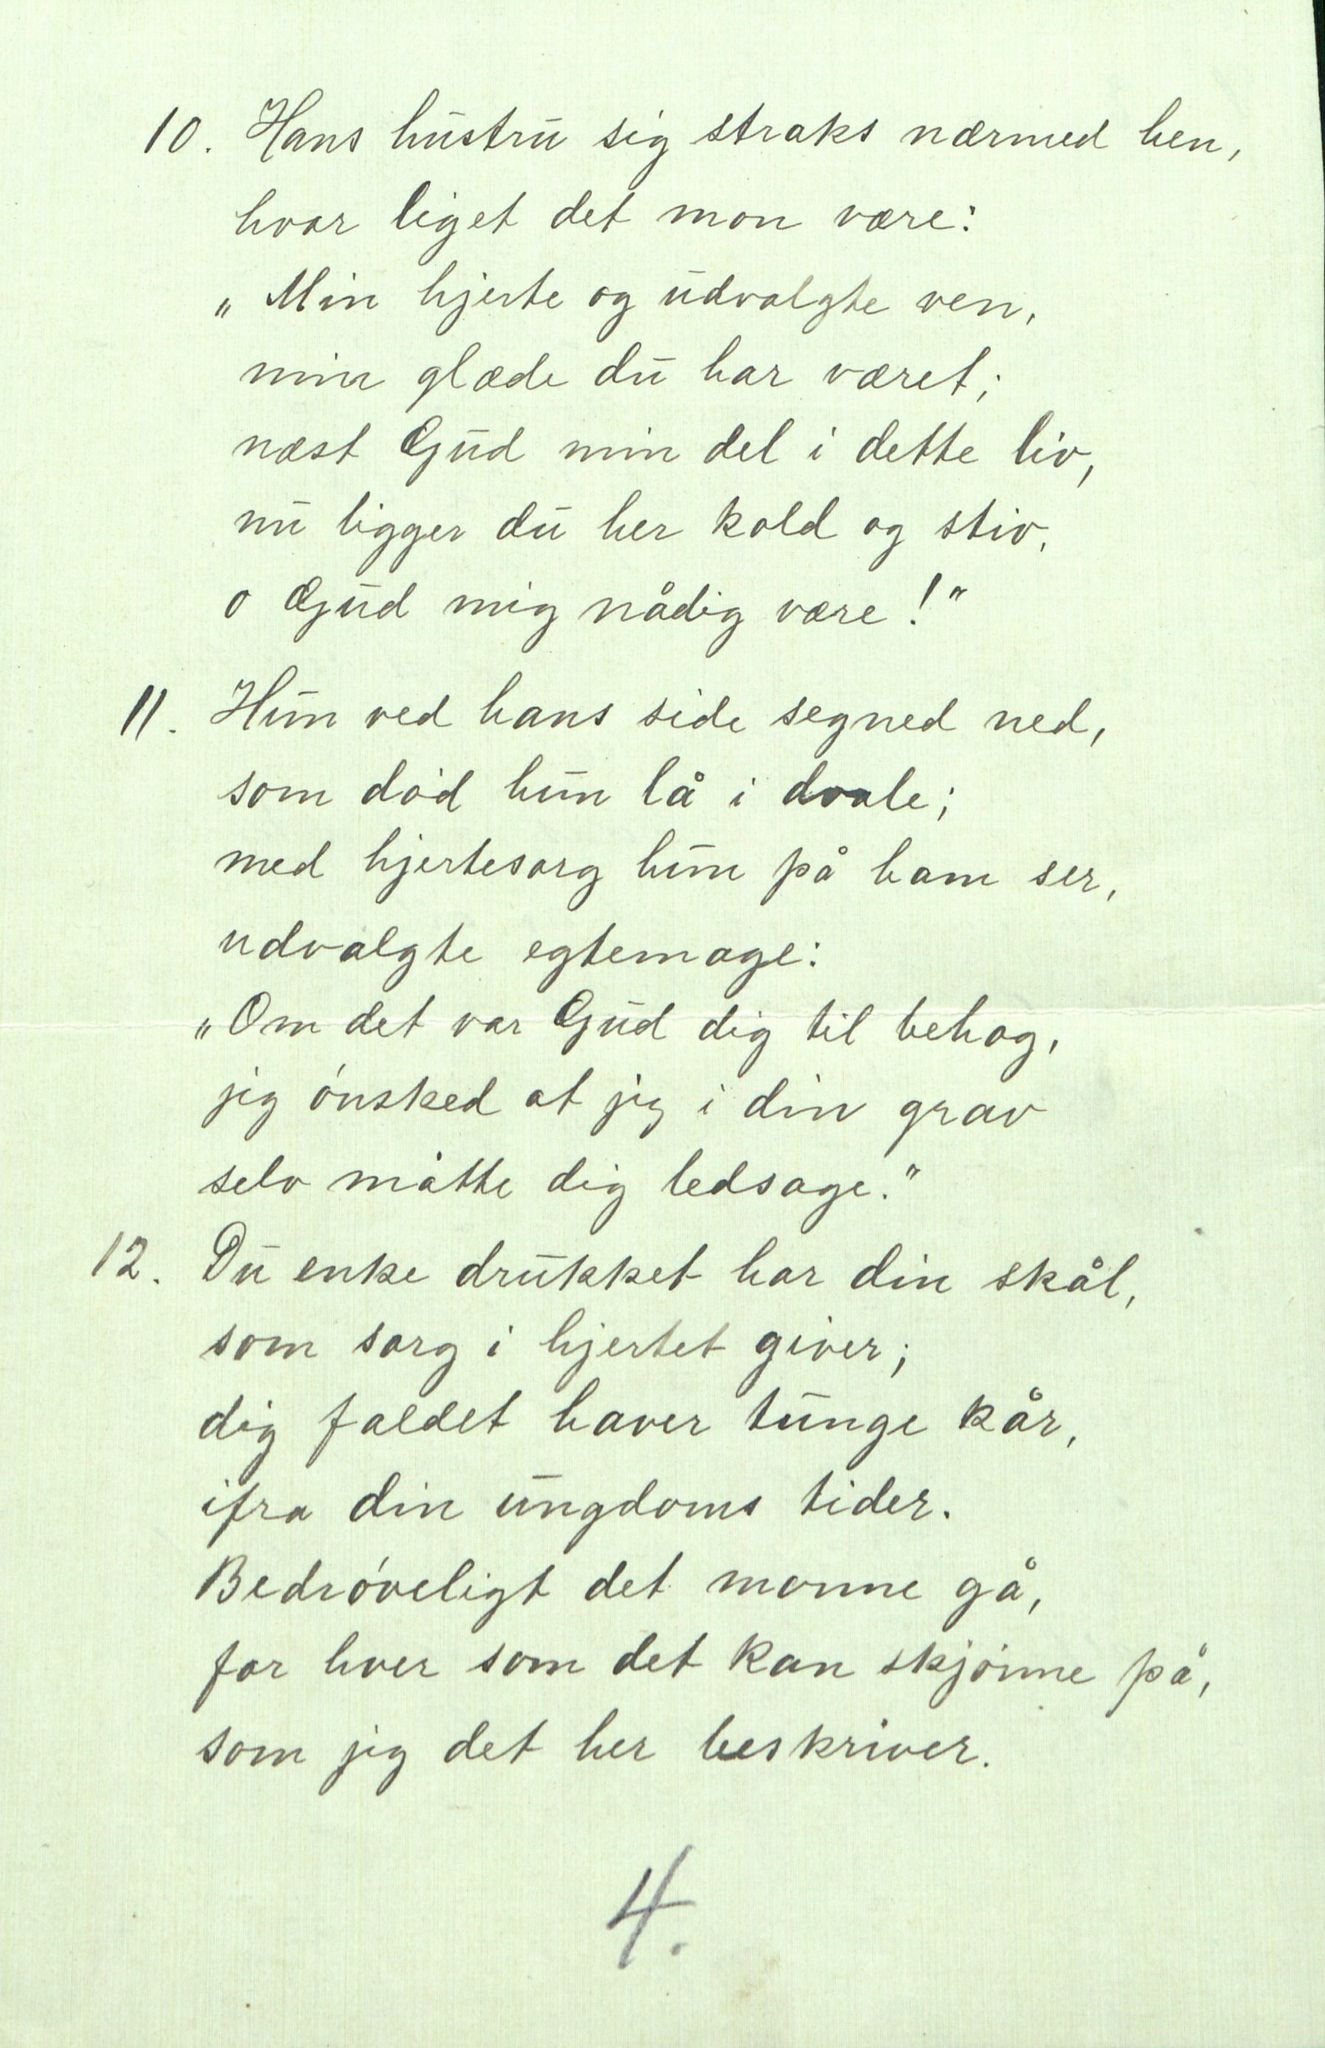 10. Hans hustru sig straks nærmed hen,
hvor liget det mon være:
„Min hjerte og udvalgte ven,
min glæde du har været;
næst Gud min del i dette liv,
nu ligger du her kold og stiv,
o Gud mig nådig være!"
11. Hun ved hans side segned ned,
som død hun lå i dvale;
med hjertesorg hun på ham ser,
udvalgte egtemage:
„Om det var Gud dig til behag,
jeg ønsked at jeg i din grav
selv måtte dig ledsage."
12. Du enke drukket har din skål,
som sorg i hjertet giver;
dig faldet haver tunge kår,
ifra din ungdoms tider.
Bedrøveligt det monne gå,
for hver som det kan skjønne på,
som jeg det her beskriver.
4.